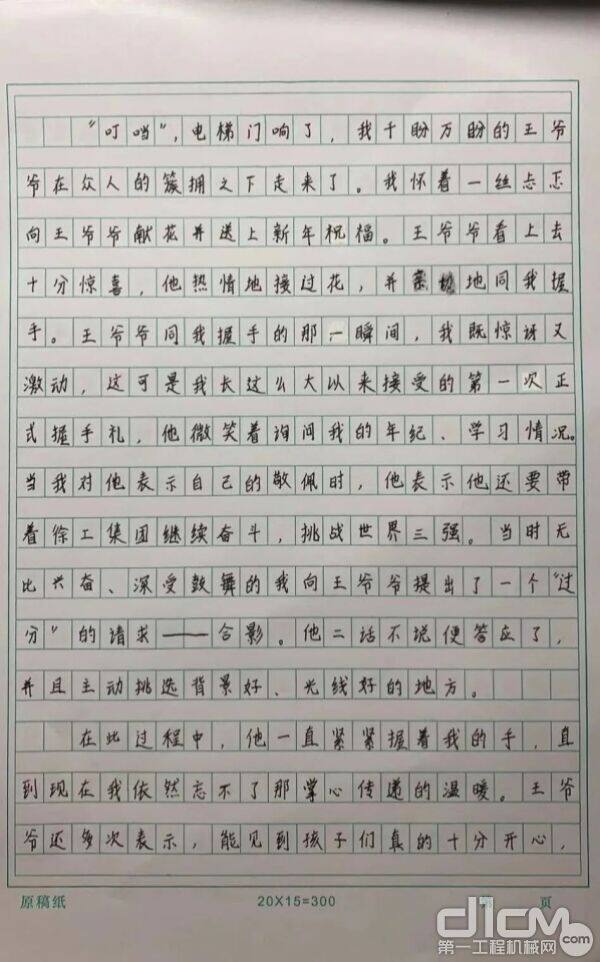 “叮当”，电梯门响了，我千盼万盼的王爷
爷在众人的簇拥之下走来了。我怀着一丝忐忑
向王爷爷献花并送上新年祝福。王爷爷看上去
十分惊喜，他热情地接过花，并亲切地同我握
手。王爷爷同我握手的那一瞬间，我既惊讶又
激动，这可是我长这么大以来接受的第一次正
式握手礼，他微笑着询问我的年纪、学习情况。
当我对他表示自己的敬佩时，他表示他还要带
着徐工集团继续奋斗，挑战世界三强。当时无
比兴奋、深受鼓舞的我向王爷爷提出了一个“过
分”的请求——合影。他二话不说便答应了，
并且主动挑选背景好、光线好的地方。
在此过程中，他一直紧紧握着我的手，直
到现在我依然忘不了那掌心传递的温暖。王爷
爷还多次表示，能见到孩子们真的十分开心，
原稿纸 20X15=300 第 页
d1cm.com
第一工程机械网